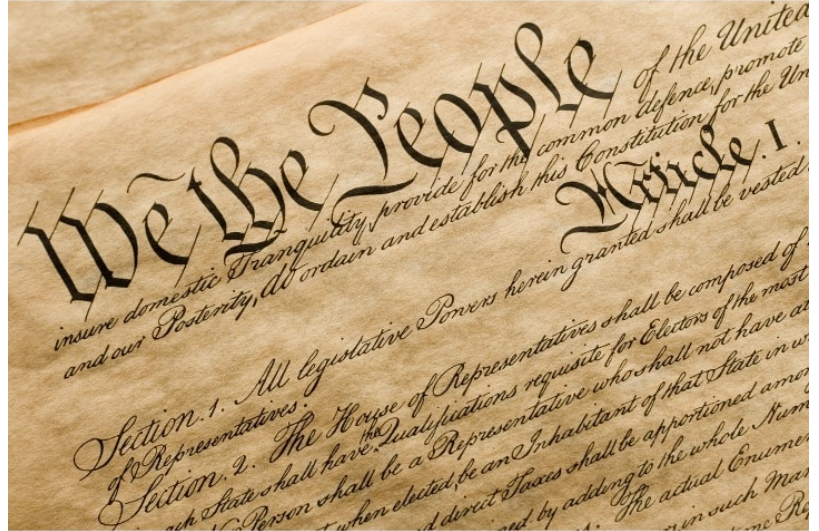 We the People of the United
insure domestic Tranquility, provide for the common defence, promote
and our Posterity, do ordain and establish this Constitution for the Un
Article. I.
Section. 1. All legislative Powers herein granted shall be vested
of Representatives.
Section. 2. The House of Representatives shall be composed of
ach State shall have the Qualifications requisite for Electors of the most
No Person shall be a Representative who shall not have at
t when elected, be an Inhabitant of that State in w
d direct Taxes shall be apportioned amon
ned, by adding to the whole Num
s. The actual Enumer
in such Man